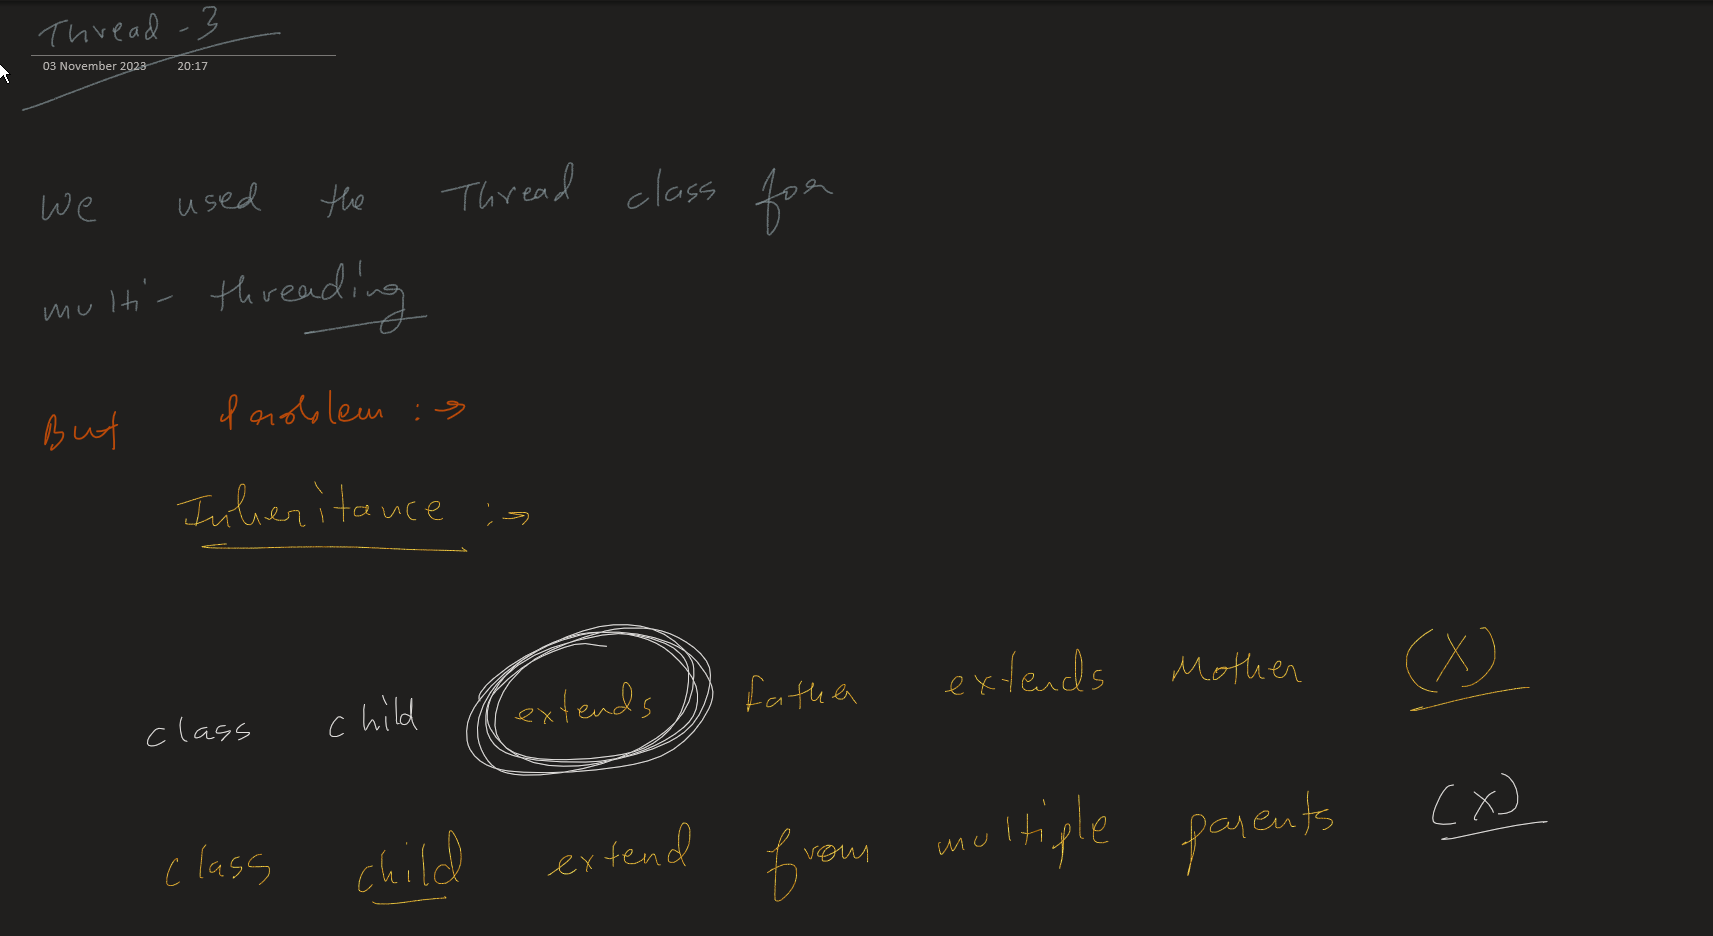 Thread - 3
03 November 2023 20:17
We used the Thread class for
multi- threading
But Problem :→
Inheritance :→
class child extends Father extends Mother (X)
class child extend from multiple parents (X)